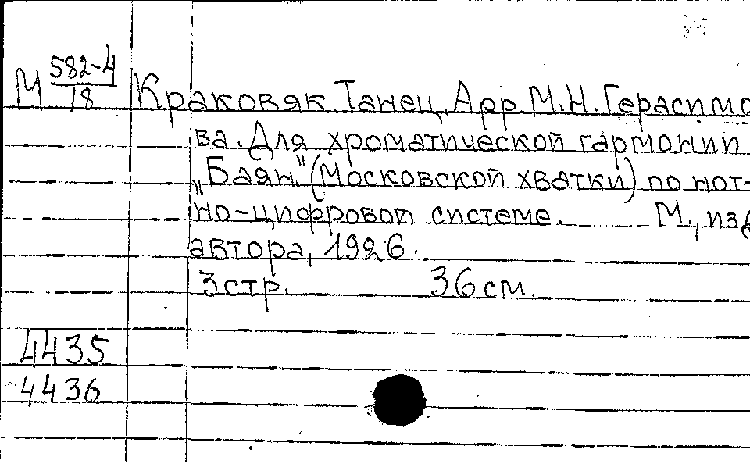 М 582-4/18 Краковяк Танец. Арр. М.Н. Герасимо
ва. Для хроматической гармонии
„Баян" (Московской хватки) по нот-
но-цифровой системе. М., изд
автора, 1926.
3 стр. 36 см.
4435
4436